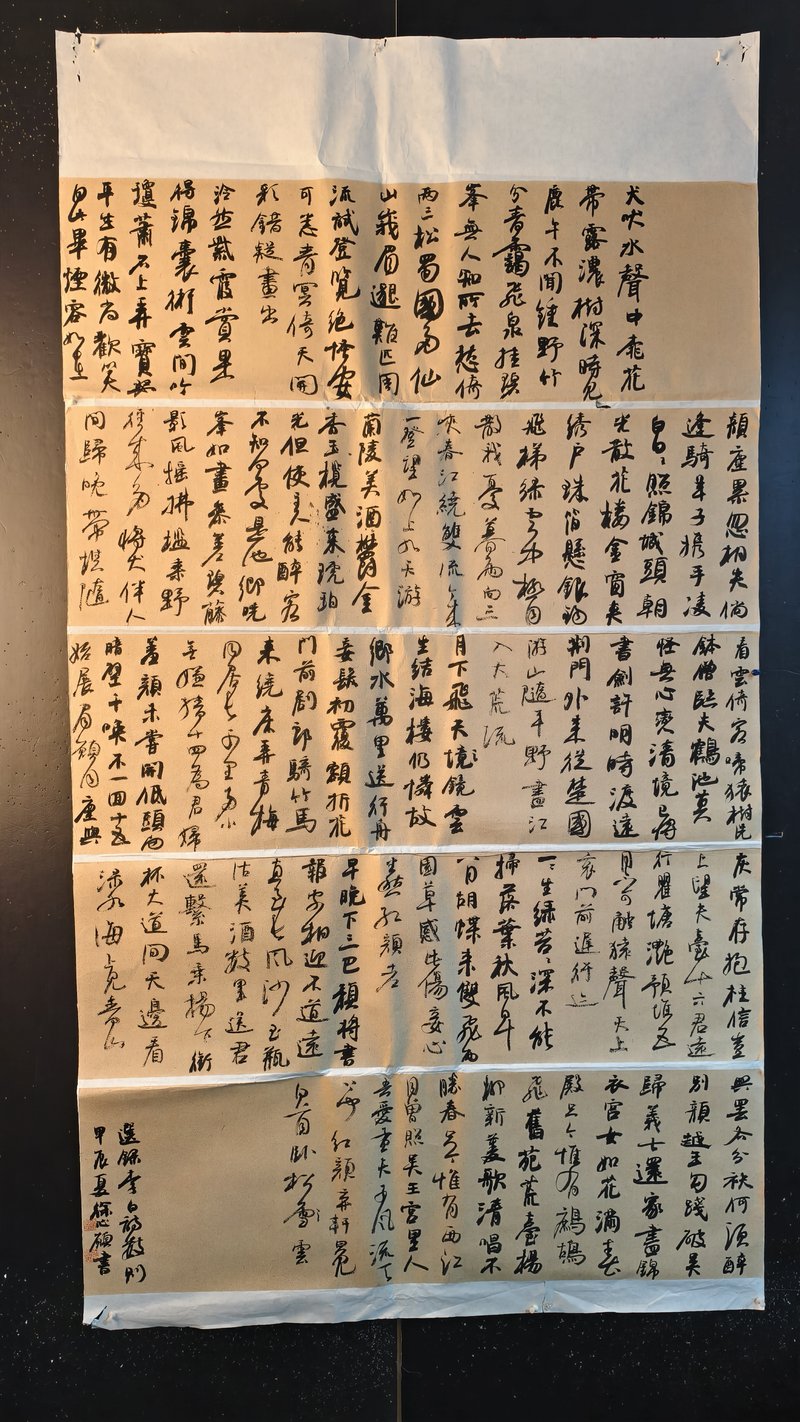 犬吠水聲中桃花
帶露濃樹深時見
鹿午不聞鍾野竹
分青靄飛泉挂碧
峯無人知所去愁倚
兩三松蜀國多仙
山峨眉邈難匹周
流試登覽絕怪安
可悉青冥倚天開
彩錯疑畫出
泠然紫霞賞果
得錦囊術雲間吟
瓊蕭石上弄寶瑟
平生有微尚歡笑
自此畢煙容如在
顏塵累忽相失倘
逢騎羊子攜手凌
白日〻照錦城頭朝
光散花樓金窗夾
繡戶珠箔懸銀鉤
飛梯綠雲中極目
散我憂暮雨向三
峽春江繞雙流今來
一登望如上九天游
蘭陵美酒鬱金
香玉椀盛來琥珀
光但使主人能醉客
不知何處是他鄉曉
峯如畫參差碧藤
影風搖拂檻垂野
徑來多將犬伴人
間歸晚帶樵隨
看雲倚客啼猿樹洗
鉢僧臨失鶴池莫
怪無心戀清境已將
書劍許明時渡遠
荊門外來從楚國
游山隨平野盡江
入大荒流
月下飛天境鏡雲
生結海樓仍憐故
鄉水萬里送行舟
妾髮初覆額折花
門前劇郎騎竹馬
來繞床弄青梅
同居長干里兩小
無嫌猜十四為君婦
羞顏未嘗開低頭向
暗壁千喚不一回十五
始展眉願同塵與
灰常存抱柱信豈
上望夫臺十六君遠
行瞿塘灩預堆五
月不可觸猿聲天上
哀門前遲行跡
一〻生綠苔〻深不能
掃落葉秋風早
八月胡蝶來雙飛西
園草感此傷妾心
坐愁紅顏老
早晚下三巴預將書
報家相迎不道遠
直至長風沙玉瓶
沽美酒數里送君
還繫馬垂楊下銜
杯大道間天邊看
淥水海上見青山
興罷各分袂何須醉
別顏越王勾踐破吳
歸義士還家盡錦
衣宮女如花滿春
殿只今惟有鷓鴣
飛舊苑荒臺楊
柳新菱歌清唱不
勝春只今惟有西江
月曾照吳王宮里人
吾愛孟夫子風流天
紅顏棄軒冕
白首卧松雲
選錄李白詩數則
甲辰夏徐心碩書